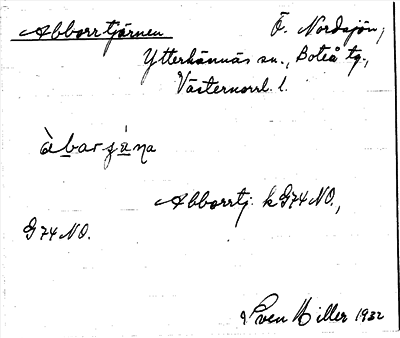 Abborrtjärnen
Ö. Nordsjön,
Ytterlännäs sn., Boteå tg.,
Västernorrl. l.
àbarȷá̱ṇa
Abborrtj. k G74 NO.,
G 74 NO.
Sven Hiller 1932